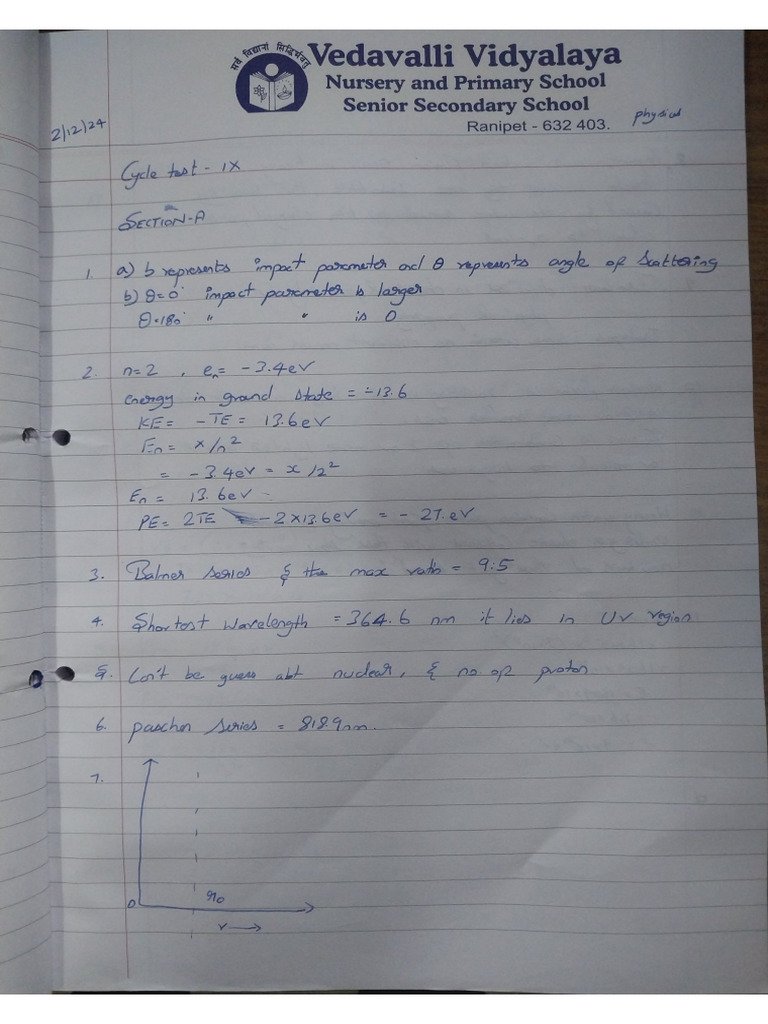 सर्व विद्यानां सिद्धिर्भवतु
Vedavalli Vidyalaya
Nursery and Primary School
Senior Secondary School
Ranipet - 632 403.
2/12/24
Cycle test - IX
SECTION-A
1. a) b represents impact parameter and θ represents angle of Scattering
b) θ=0° impact parameter is larger
θ=180° " " is 0
2. n=2 , en= -3.4eV
energy in ground state = -13.6
KE = -TE = 13.6eV
En = x/n²
= -3.4eV = x/2²
En = 13.6eV
PE = 2TE -2x13.6eV = - 27.eV
3. Balmer series & the max ratio = 9:5
4. Shortest wavelength = 364.6 nm it lies in UV region
5. Can't be guess abt nuclear, & no. of proton
6. paschen series = 818.9nm.
7.
0 r0
r →